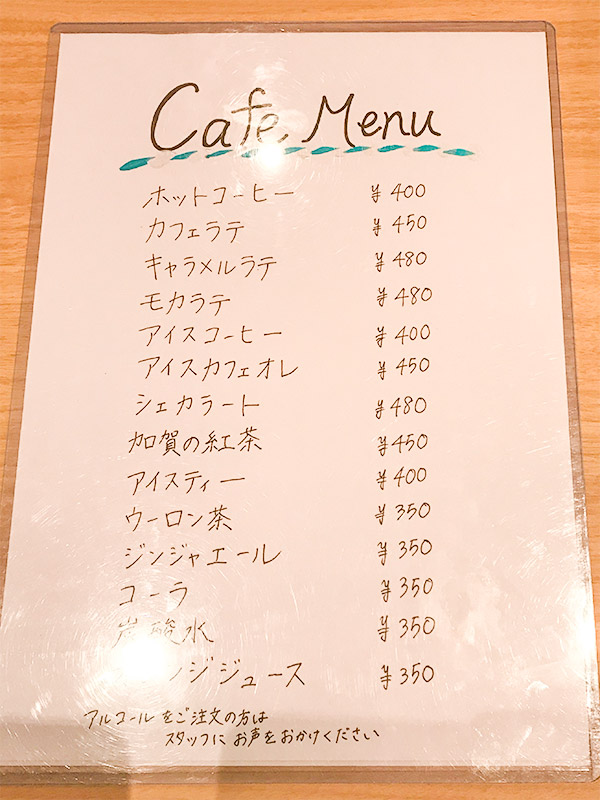 Cafe Menu
ホットコーヒー ¥400
カフェラテ ¥450
キャラメルラテ ¥480
モカラテ ¥480
アイスコーヒー ¥400
アイスカフェオレ ¥450
シェカラート ¥480
加賀の紅茶 ¥450
アイスティー ¥400
ウーロン茶 ¥350
ジンジャエール ¥350
コーラ ¥350
炭酸水 ¥350
ンジジュース ¥350
アルコールをご注文の方は
スタッフにお声をおかけください